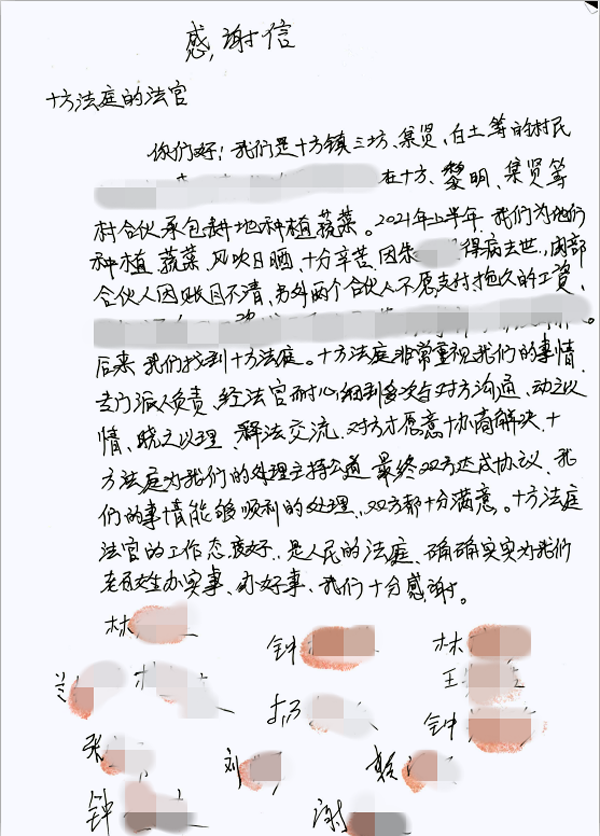 感谢信
十方法庭的法官
你们好！我们是十方镇三坊、集贤、白土等的村民
在十方、黎明、集贤等
村合伙承包耕地种植蔬菜。2021年上半年,我们为他们
种植蔬菜,风吹日晒、十分辛苦,因朱 得病去世,内部
合伙人因账目不清,另外两个合伙人不愿支付拖欠的工资,
后来我们找到十方法庭。十方法庭非常重视我们的事情,
专门派人负责,经法官耐心细利多次与对方沟通、动之以
情、晓之以理、释法交流,对方才愿意协商解决,十
方法庭为我们的处理主持公道,最终双方达成协议,我
们的事情能够顺利的处理,双方都十分满意。十方法庭
法官的工作态度好,是人民的法庭、确确实实为我们
老百姓办实事、办好事、我们十分感谢。
林 钟 林
王
钟
张 刘
钟 谢